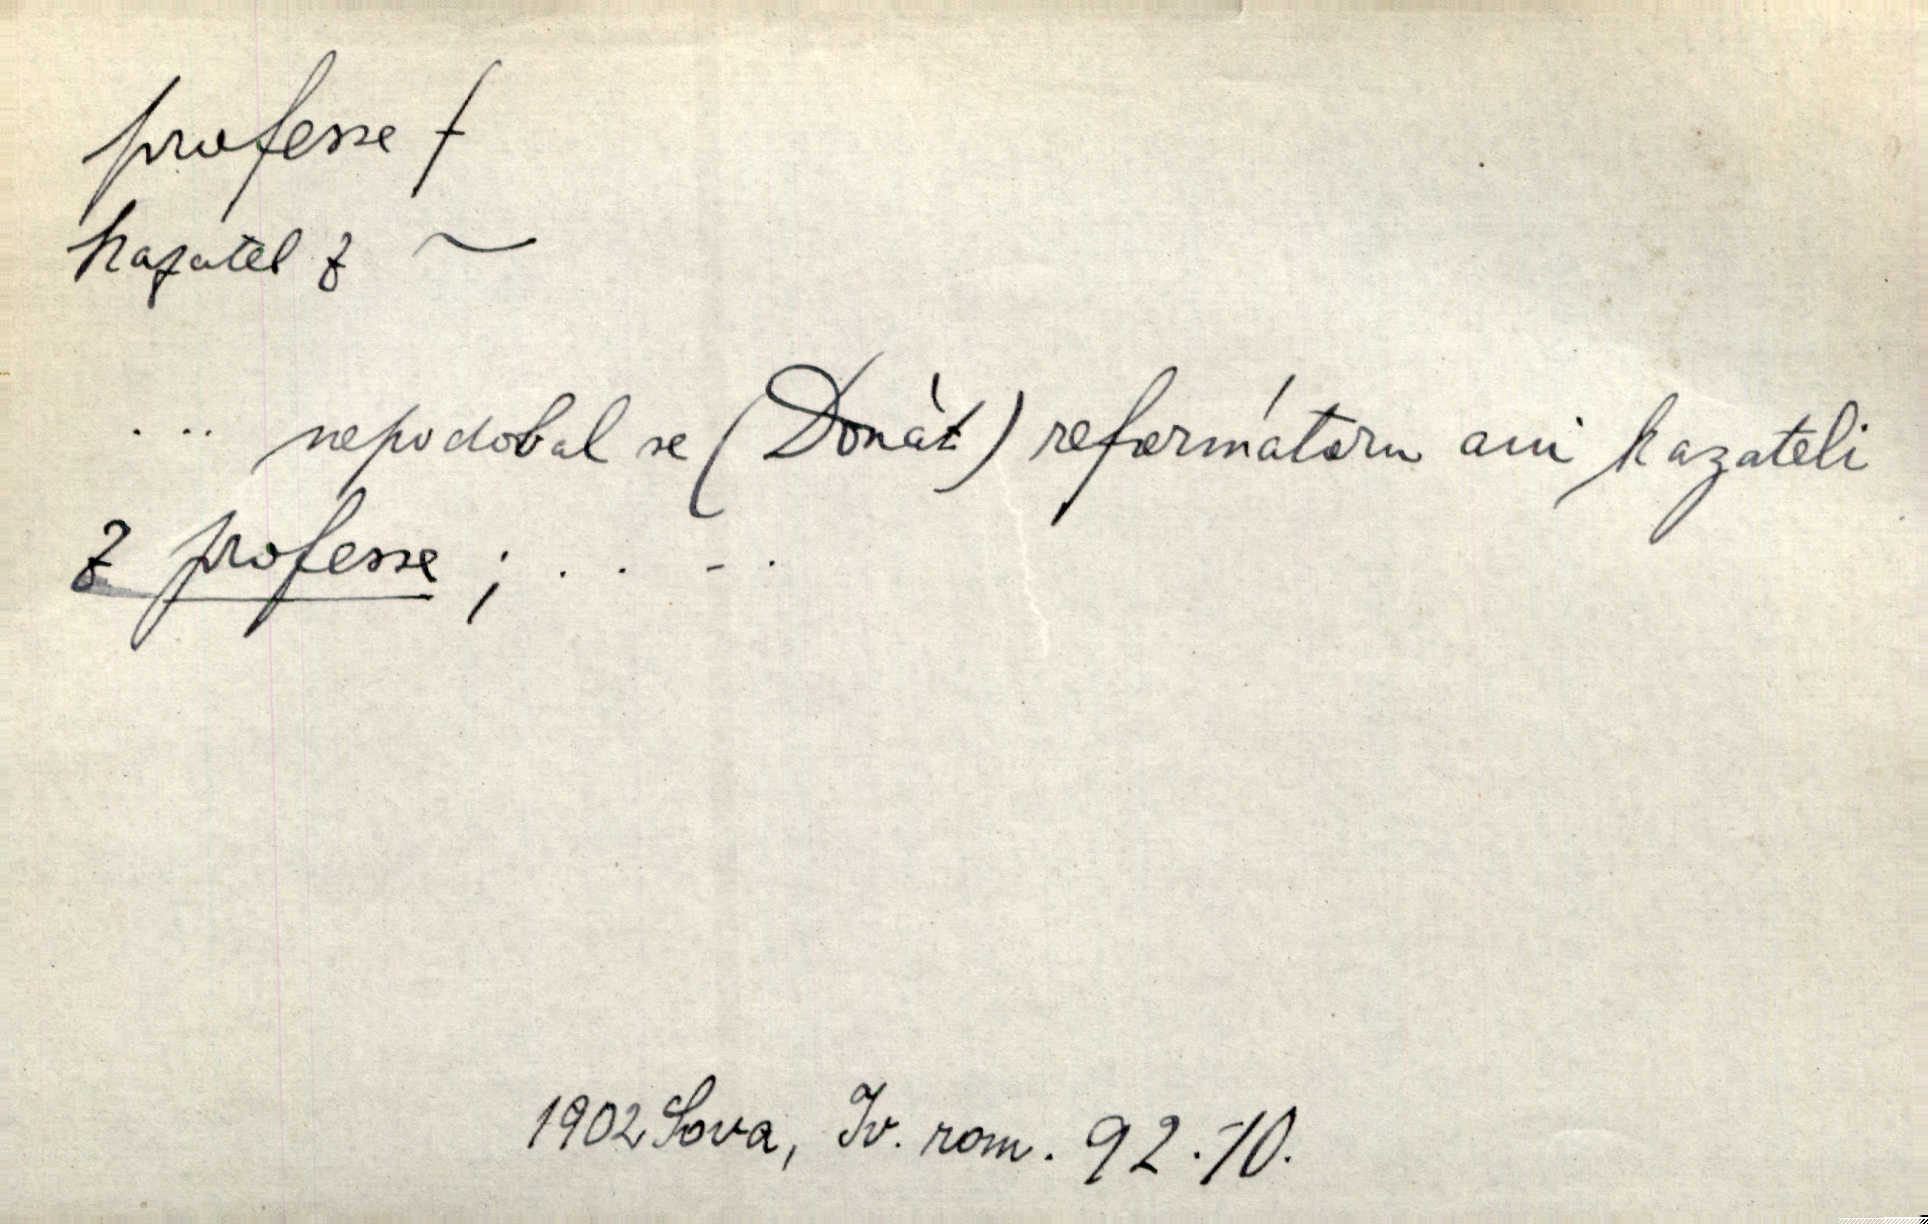 professe f
kazatel z ~
... nepodobal se (Donát) reformátoru ani kazateli
z professe ; . . - .
1902 Sova, Iv. rom. 92.-10.